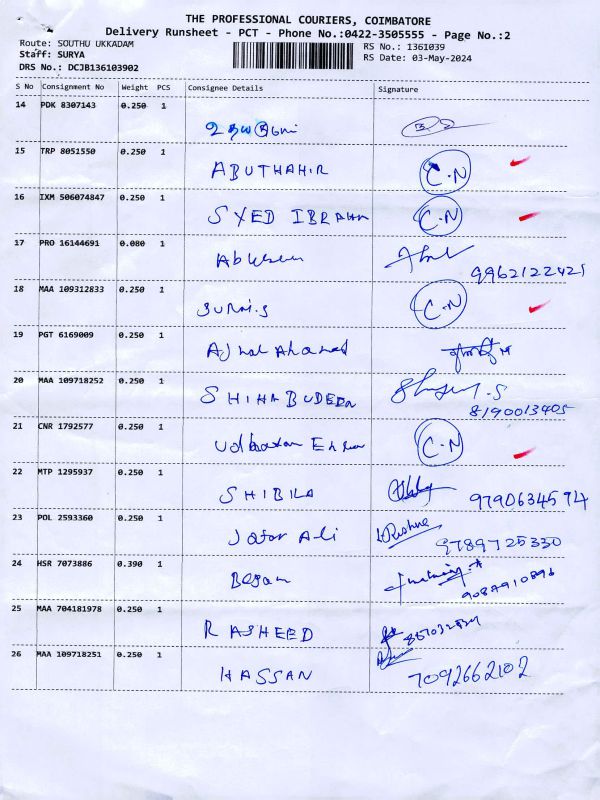 THE PROFESSIONAL COURIERS, COIMBATORE
Delivery Runsheet - PCT - Phone No.:0422-3505555 - Page No.:2
Route: SOUTHU UKKADAM RS No.: 1361039
Staff: SURYA RS Date: 03-May-2024
DRS No.: DCJB136103902
S No Consignment No Weight PCS Consignee Details Signature
14 PDK 8307143 0.250 1
15 TRP 8051550 0.250 1 ABUTHAHIR C.N
16 IXM 506074847 0.250 1 SYED IBRAHM C.N
17 PRO 16144691 0.080 1
9962122421
18 MAA 109312833 0.250 1 C.N
19 PGT 6169009 0.250 1 Ajmal Ahamed
20 MAA 109718252 0.250 1 SHIHABUDEEN
8190013405
21 CNR 1792577 0.250 1 C.N
22 MTP 1295937 0.250 1 SHIBILA 9790634594
23 POL 2593360 0.250 1 Jafar Ali 9789725330
24 HSR 7073886 0.390 1 Began
9087910896
25 MAA 704181978 0.250 1 RASHEED
26 MAA 109718251 0.250 1 HASSAN 7092662102